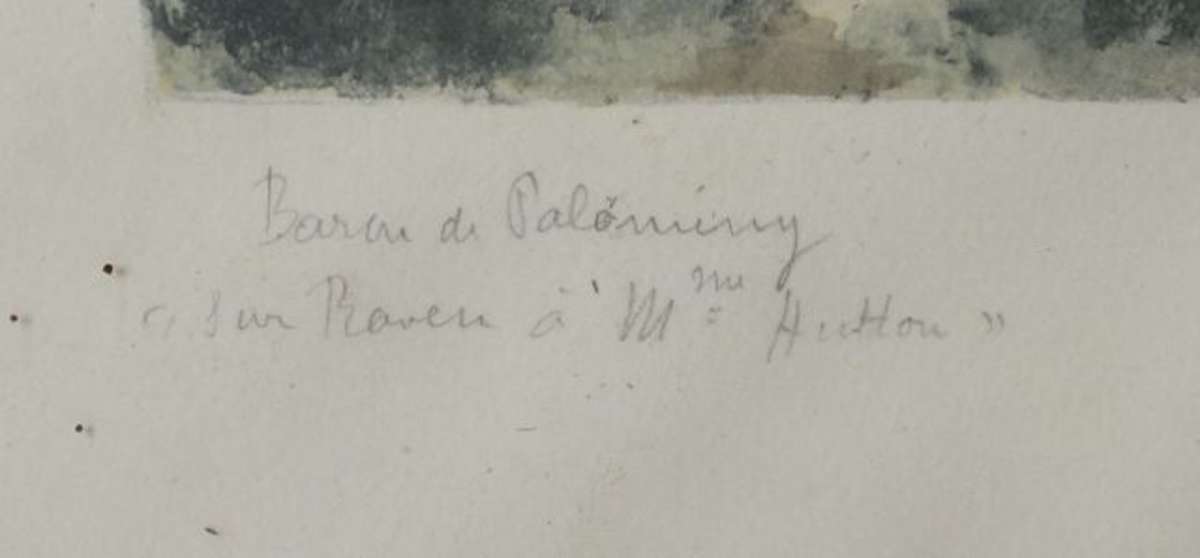 Baron de Palóminy
" Sur Raven à Mme Hutton "